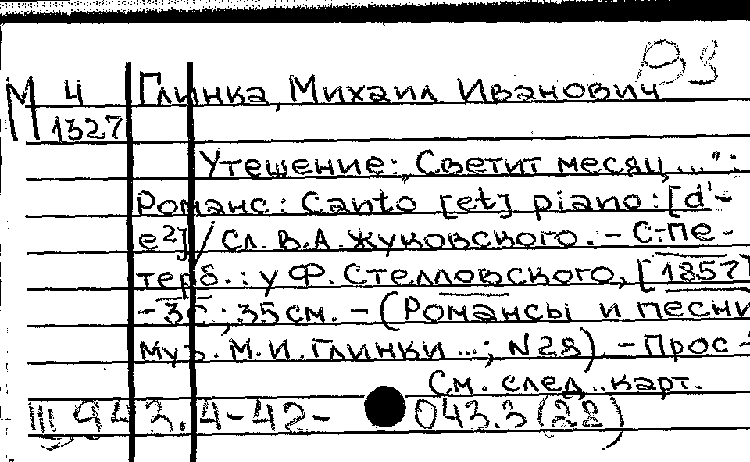 М 4 Глинка, Михаил Иванович
1327
Утешение: „Светит месяц, ...":
Романс: Canto [et] piano: [d¹-
e²] / Сл. В.А. Жуковского. - С.-Пе-
терб.: у Ф. Стелловского, [1857]
- 3 с.; 35 см. - (Романсы и песни
муз. М.И. Глинки ...; N28). - Прос-
См. след. карт.
III 943.4-42- 043.3(28)